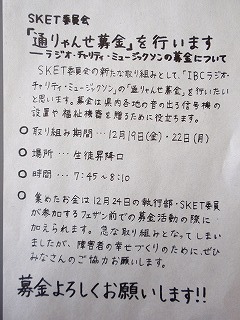 SKET委員会
『通りゃんせ募金』を行います
ラジオ・チャリティ・ミュージックソンの募金について
SKET委員会の新たな取り組みとして、「IBCラジオ・
チャリティ・ミュージックソン」の「通りゃんせ募金」を行いたい
と思います。募金は県内各地の音の出る信号機の
設置や福祉機器を贈るために役立ちます。
○ 取り組み期間…12月19日(金)・22日(月)
○ 場所…生徒昇降口
○ 時間…7:45〜8:10
○ 集めたお金は12月24日の執行部・SKET委員
が参加するフェザン前での募金活動の際に
加えられます。急な取り組みとなってしまい
ましたが、障害者の幸せづくりのためにぜひ
みなさんのご協力お願いします。
募金よろしくお願いします!!